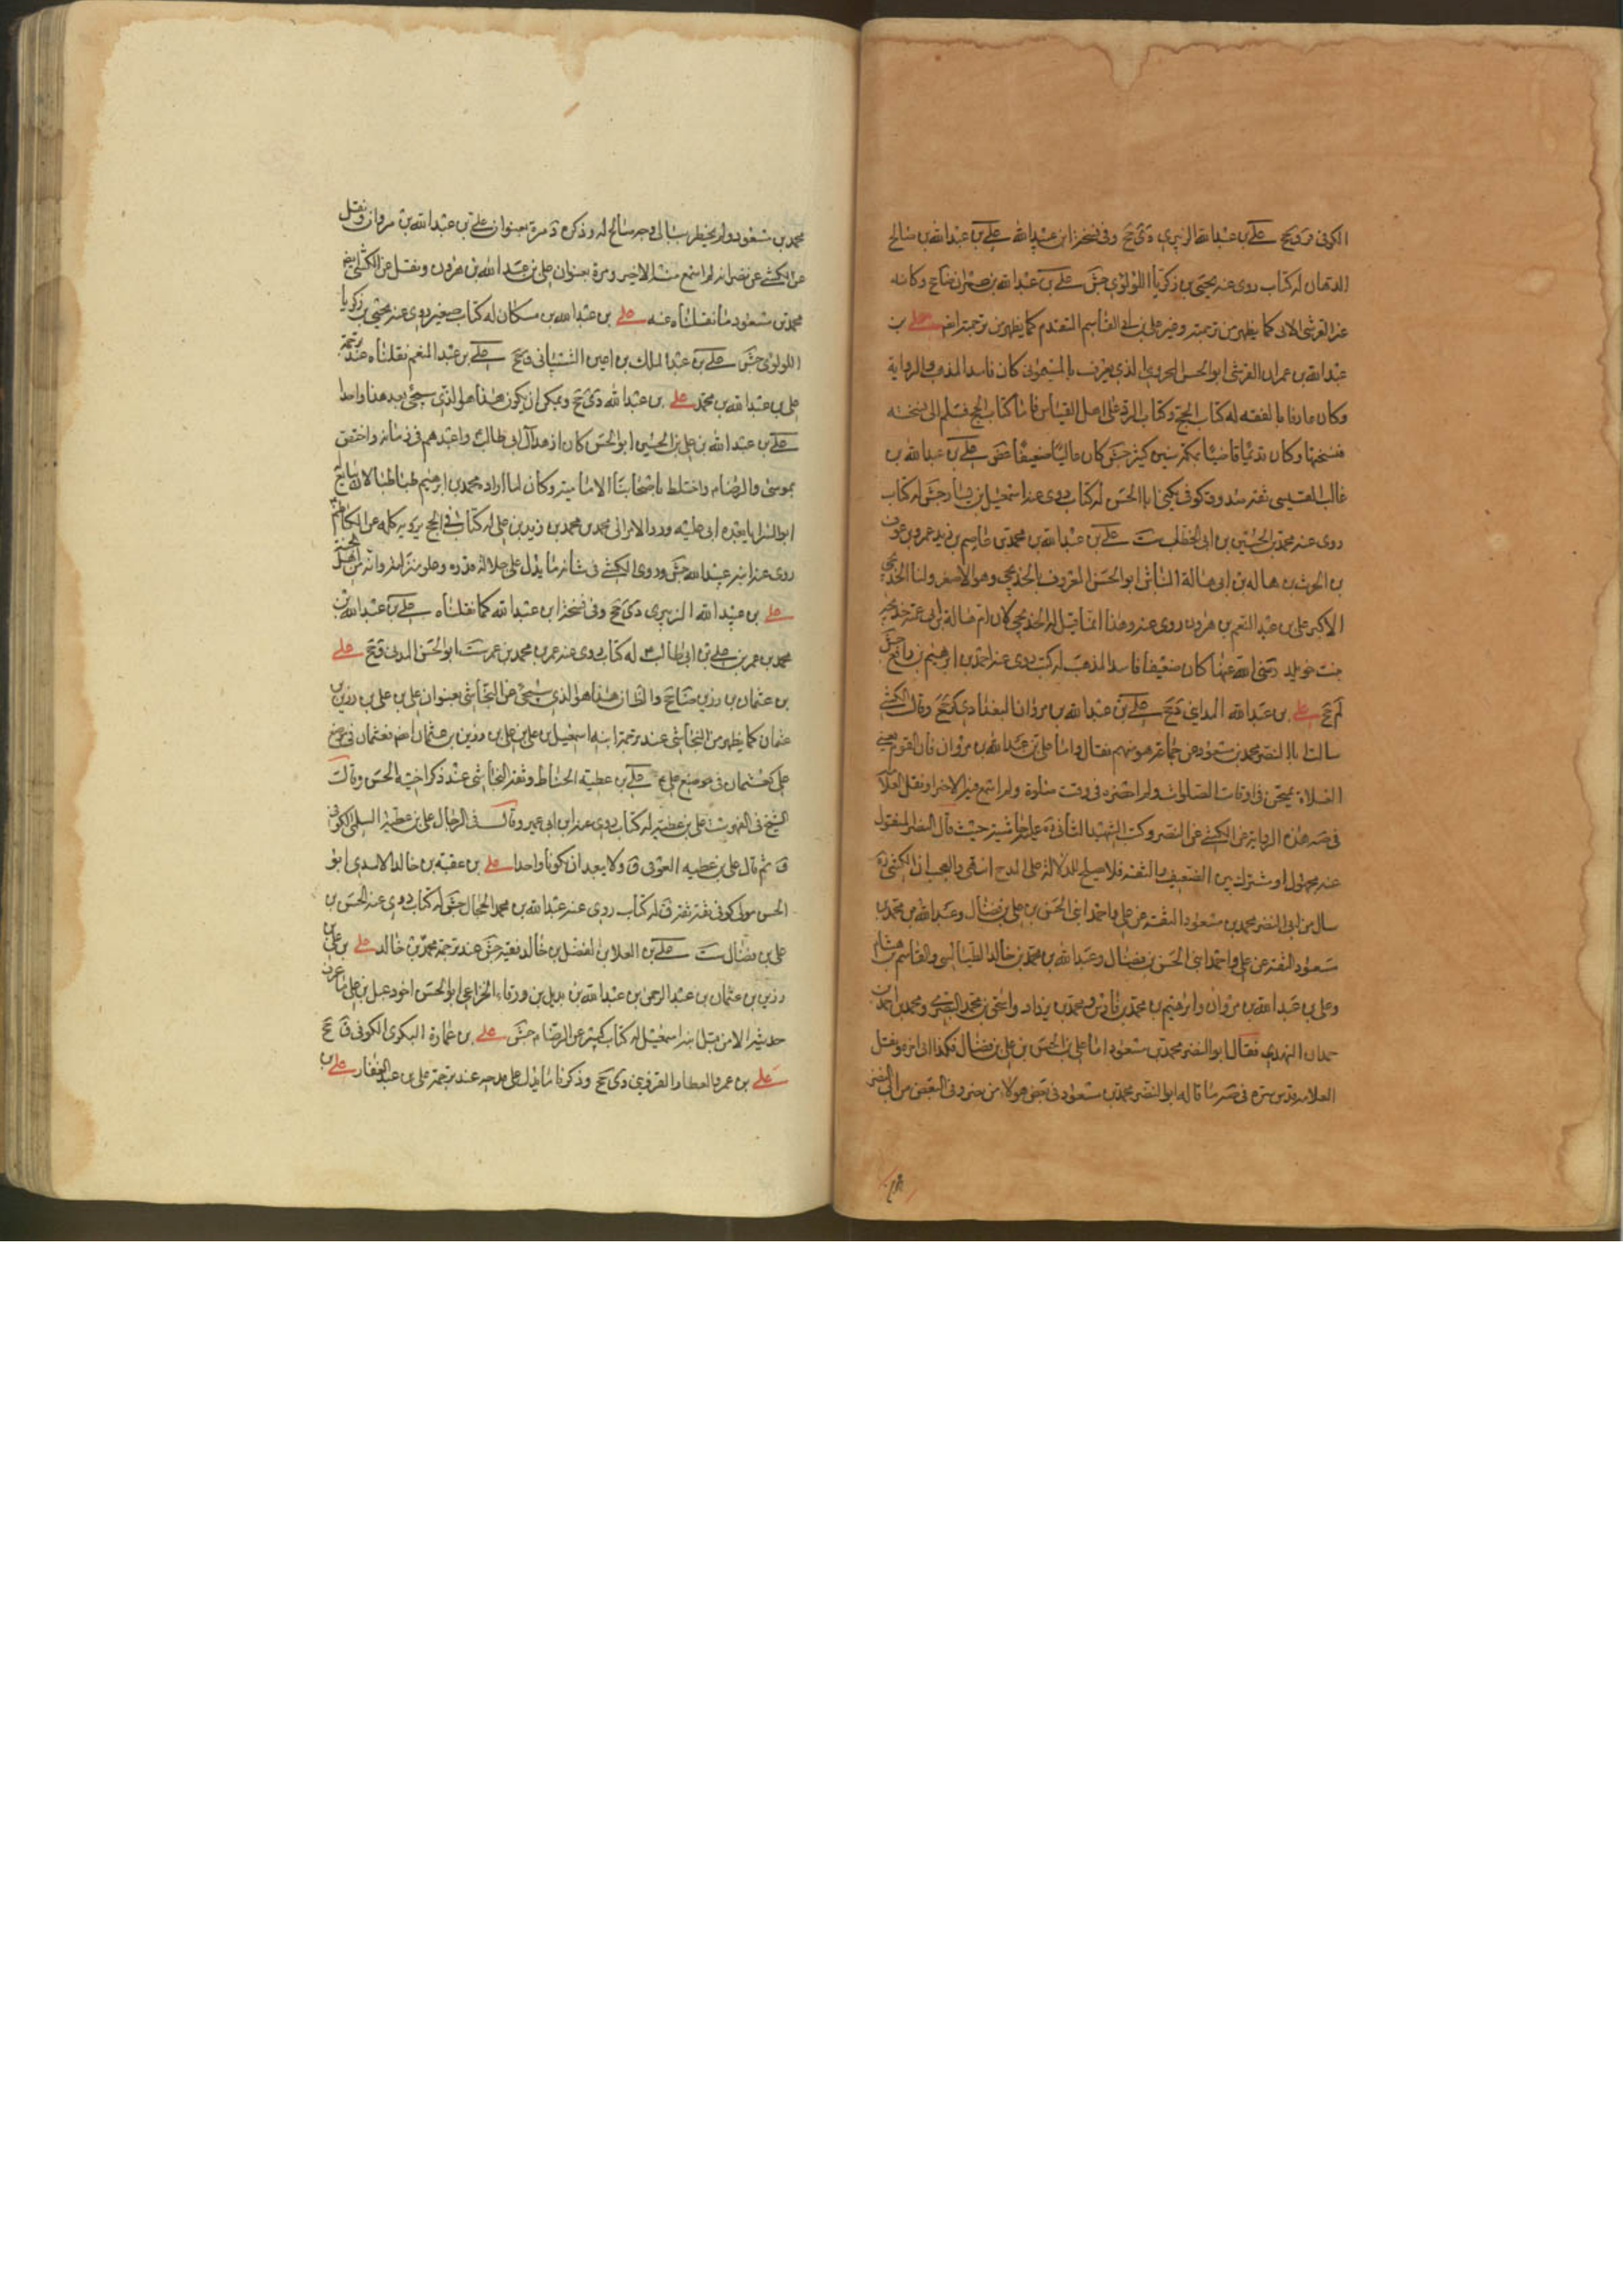 الكوفى ق وجخ علي بن عبدالله الزبيرى دى جخ وفى نسخة ابن عبيدالله علي بن عبدالله بن صالح
الدهان له كتاب روى عنه يحيى بن زكريا اللولوى جش علي بن عبدالله بن عمران
عن القرشى الاتى كما يظهر من ترجمته وغير على بن ابى القاسم المتقدم كما يظهر من ترجمته علي بن
عبدالله بن عمران القرشى ابوالحسن المخزومى الذى يعرف بالميمونى كان فاسد المذهب والرواية
وكان عارفا بالفقه له كتاب الحج وكتاب الرد على اهل القياس فاما كتاب الحج فسلم الى نسخته
فنسختها وكان قاضيا بمكة سنين كثيرة جش كان غاليا ضعيفا علي بن عبدالله بن
غالب القيسى ثقة صدوق كوفى يكنى ابا الحسن له كتاب روى عنه اسمعيل بن يسار جش له كتاب
روى عنه محمد بن الحسين بن ابى الخطاب ست علي بن عبدالله بن محمد بن عاصم بن زيد بن عمرو بن عوف
بن الحرث بن هالة بن ابى هالة النباش ابوالحسن المعروف بالخديجى وهو الاصغر ولنا الخديجى
الاكبر على بن عبدالنعيم بن هرون روى عنه وهذا انما قيل له الخديجى لان ام هالة بن ابى هالة خديجة
بنت خويلد رضى الله عنها كان ضعيفا فاسد المذهب له كتب روى عنه احمد بن ابرهيم بن رافع جش
لم جخ علي بن عبدالله المداينى جخ علي بن عبدالله بن مروان البغدادى كر جخ وقال الكشى
سالت ابا النضر محمد بن مسعود عن جماعة هو منهم فقال واما على بن عبدالله بن مروان فان القوم يعنى
الغلاة يمتحن فى اوقات الصلوات ولم احضره فى وقت صلوة ولم اسمع فيه الا خيرا ونقل العلامة
فى صه هذه الرواية عن الكشى عن النضر وكتب الشهيد الثانى ره عليه حاشية حيث قال النضر المنقول
عنه مجهول او مشترك بين الضعيف والثقة فلا يصلح للدلالة على المدح انتهى والعجب ان الكشى ره
سال من ابى النضر محمد بن مسعود الثقة عن على واحمد ابنى الحسن بن على بن فضال وعبدالله بن محمد بن
مسعود الثقة عن على واحمد ابنى الحسن بن فضال وعبدالله بن محمد بن خالد الطيالسى والقاسم بن هشام
وعلى بن عبدالله بن مروان وابرهيم بن محمد بن فارس ومحمد بن يزداد واسحق بن محمد البصرى ومحمد بن احمد بن
حمدان النهدى فقال ابو النضر محمد بن مسعود اما على بن الحسن بن على بن فضال فكذا الى اخره ونقل
العلامة قدس سره فى صه ما قاله ابو النضر محمد بن مسعود فى بعض هولاء من نضر وفى البعض من ابى النضر
محمد بن مسعود ولم يخطر ببالى وجه صالح له وذكره د مرة بعنوان على بن عبدالله بن مروان ونقل
عن الكشى عن نضر انه لم اسمع منه الا خير ومرة بعنوان على بن عبدالله بن هرون ونقل عن الكشى ايضا
محمد بن مسعود ما نقلناه عنه علي بن عبدالله بن مسكان له كتاب صغير روى عنه يحيى بن زكريا
اللولوى جش علي بن عبدالملك بن اعين الشيبانى ق جخ علي بن عبدالمنعم نقلناه عند ترجمة
على بن عبدالله بن محمد علي بن عبدالله دى جخ ويمكن ان يكون هذا هو الذى سيجئ بعد هذا واسطا
علي بن عبدالله بن على بن الحسين ابوالحسن كان ازهد آل ابى طالب واعبدهم فى زمانه واختص
بموسى والرضا م واختلط باصحابنا الامامية وكان لما اراد محمد بن ابرهيم طباطبا لان يبايع
ابوالسرايا بعده ابى عليه ورد الامر الى محمد بن محمد بن زيد بن على له كتاب فى الحج يرويه كله عن الكاظم
روى عنه ابنه عبيدالله جش وروى الكشى فى شانه ما يدل على جلالة قدره وعلو منزلته وانه من اهل الجنة
علي بن عبيدالله الزبيرى دى جخ وفى نسخة ابن عبدالله كما نقلناه علي بن عبدالله بن
محمد بن عمر بن علي بن ابى طالب م له كتاب روى عنه عمر بن محمد بن عمر ست ابوالحسن المدنى ق جخ علي
بن عثمان بن رزين ضا جخ والظاهر هذا هو الذى سيجئ عن النجاشى بعنوان على بن على بن رزين بن
عثمان كما يظهر من النجاشى عند ترجمة ابنه اسمعيل بن على بن على بن رزين بن عثمان اهم فعثمان فى موضع
على كعثمان فى موضع على جخ علي بن عطية الحناط وثقه النجاشى عند ذكر اخيه الحسن وقال
الشيخ فى الفهرست على بن عطية له كتاب روى عنه ابن ابى عمير وقال فى الرجال على بن عطية السلمى الكوفى
ق ثم قال على بن عطيه العوفى ق ولا يبعد ان يكونا واحدا علي بن عقبه بن خالد الاسدى ابو
الحسن مولى كوفى ثقة ثقة ق له كتاب روى عنه عبدالله بن محمد الحجال جش له كتاب روى عنه الحسن بن
على بن فضال ست علي بن العلا بن الفضل بن خالد فقيه جش عند ترجمة محمد بن خالد علي بن على بن
رزين بن عثمان بن عبدالرحمن بن عبدالله بن بديل بن ورقاء الخزاعى ابوالحسن اخو دعبل بن على ما عرف
حديثه الا من قبل ابنه اسمعيل له كتاب كبير عن الرضا م جش علي بن عمارة البكرى الكوفى ق جخ
علي بن عمرو العطار القزوينى دى جخ وذكرنا ما يدل على مدحه عند ترجمة على بن عبدالغفار علي بن